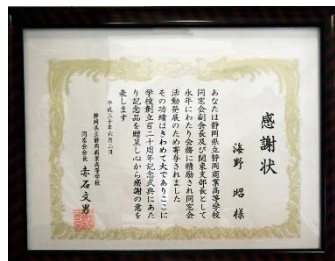 感謝状
海野 昭 様
あなたは静岡県立静岡商業高等学校
同窓会副会長及び関東支部長として
永年にわたり会務に精励され同窓会
活動発展のため寄与されました
その功績はきわめて大でありここに
学校創立百二十周年記念式典にあた
り記念品を贈呈し心から感謝の意を
表します
平成三十年六月二日
静岡県立静岡商業高等学校
同窓会会長 赤石文男